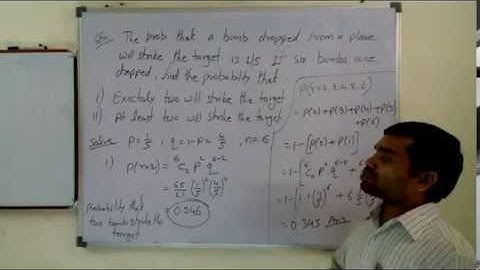 The prob that a bomb dropped from a plane
will strike the target is 1/5 If six bombs are
dropped, find the probability that
I) Exactaly two will strike the target
II) At least two will strike the target
P = 1/5, q = 1-P = 4/5, n = 6
1) P(x=2) = ⁶C₂ P² q⁶⁻²
Probability that
two bomb strike the
target
P(x=2,3,4,5,6)
= P(2)+P(3)+P(4)+P(5)
+P(6)
= 1-[P(0)+P(1)]
= 0.345 Ans